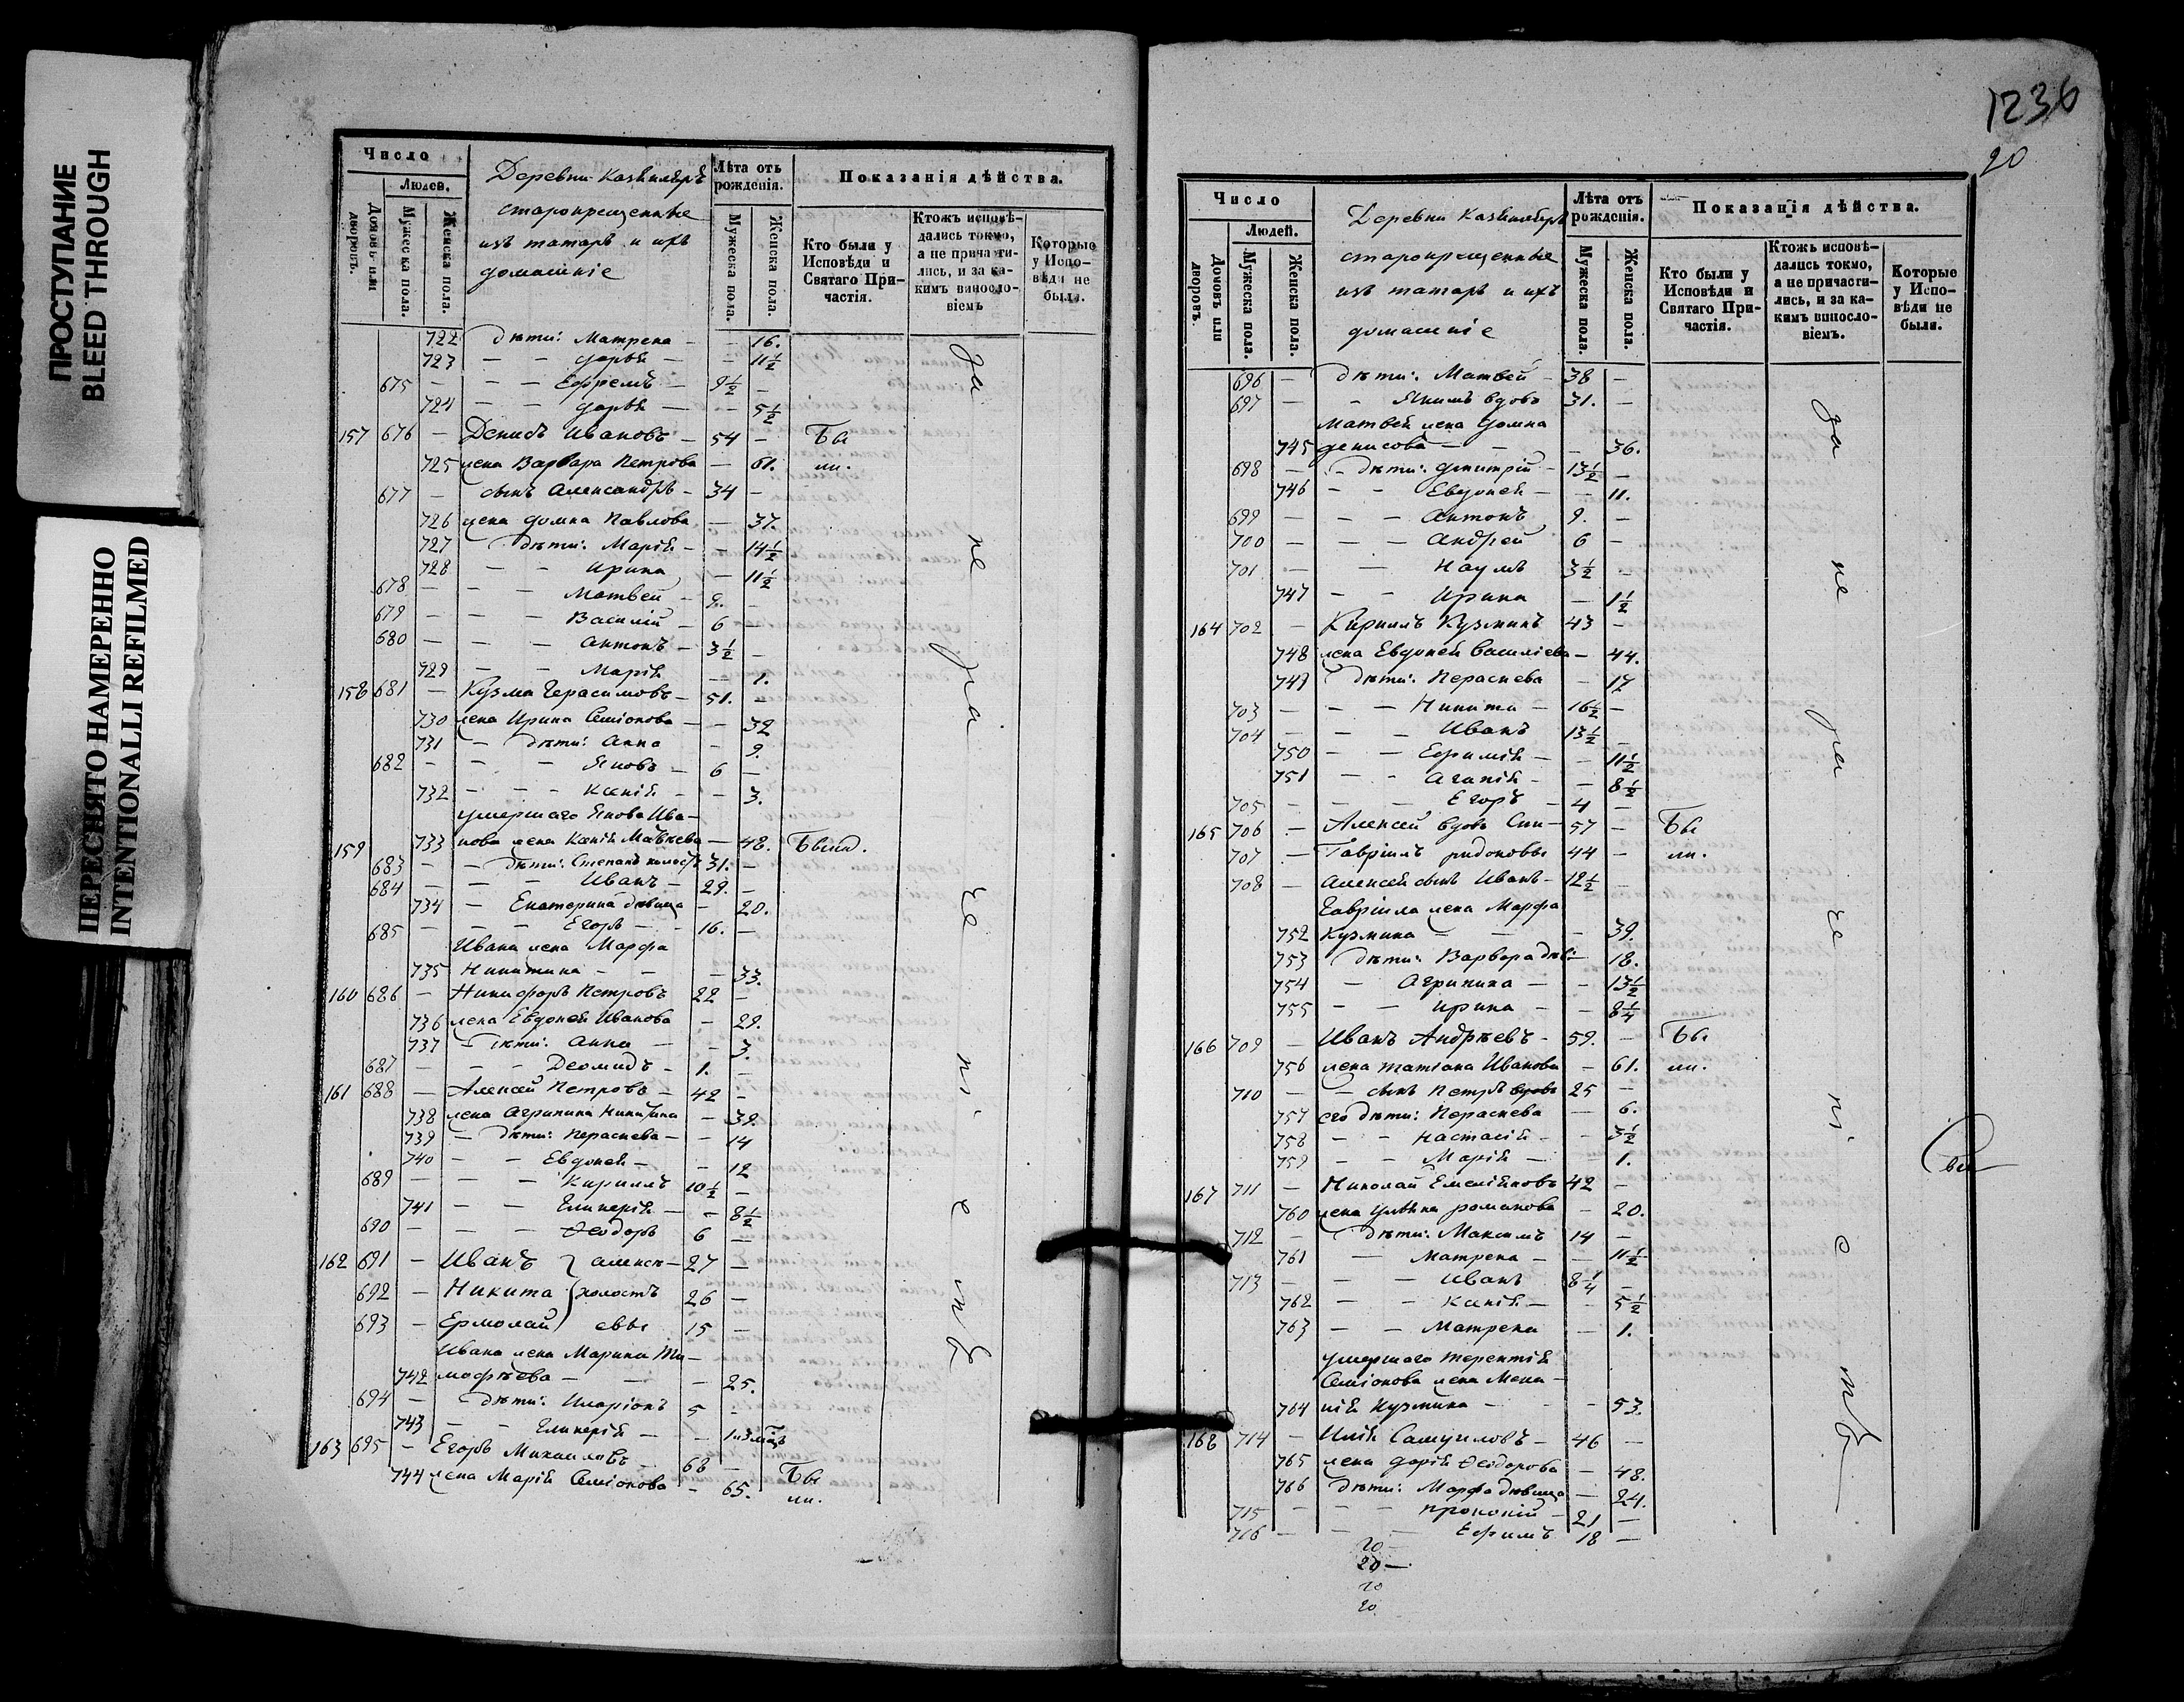 ПРОСТУПАНИЕ
BLEED THROUGH
ПЕРЕСНЯТО НАМЕРЕННО
INTENTIONALLI REFILMED
Число
Людей.
Домовъ или дворовъ.
Мужеска пола.
Женска пола.
Деревни
старокрещенные
изъ татаръ и ихъ
домашніе
Лѣта отъ рожденія.
Мужеска пола.
Женска пола.
Показанія дѣйства.
Кто были у Исповѣди и Святаго Причастія.
Ктожъ исповѣдались токмо, а не причастились, и за какимъ винословіемъ
Которые у Исповѣди не были.
722 дѣти: Матрена - - 16.
723 - - дарья - - 11½
675 - - - Ефремъ - 9½ -
724 - - дарья - - 5½
157 676 - Денисъ Ивановъ - 54 - Бы
725 жена Варвара Петрова - 61. ли.
677 - сынъ Александръ - 34 -
726 жена домна Павлова - 37.
727 - дѣти: Марія - - 14½
728 - - Ирина - 11½
678 - - - Матвей - 9. -
679 - - - Василій - 6 -
680 - - - Антонъ - 3½ -
729 - - Марія - 1.
158 681 - Кузма Герасимовъ - 51. -
730 жена Ирина Семіонова - - 32
731 - дѣти: Анна - 9.
682 - - - Яковъ - 6 -
732 - - - Ксенія - - 3.
умершаго Якова Ива-
159 733 нова жена Ксенія Матвѣева - 48. Была.
683 - - дѣти: Степанъ холостъ 31. -
684 - - - Иванъ - 29. -
734 - Екатерина дѣвица - 20.
685 - - - Егоръ - - 16. -
Ивана жена Марфа
735 Никитина - - - 33.
160 686 - Никифоръ Петровъ 22 -
736 жена Евдокея Иванова - 29.
737 - дѣти: Анна - - 3.
687 - - - Деомидъ - 1. -
161 688 - Алексей Петровъ - 42 -
738 жена Агрипина Никитина - 39.
739 - дѣти: Пераскева - - 14
740 - - Евдокея - - 12
689 - - - Кирилъ 10½ -
741 - - Гликерія - - 8½
690 - - - Ѳеодоръ 6 -
162 691 - Иванъ } алексѣ- 27 -
692 - Никита } холостъ 26 -
693 - Ермолай } евы 15 -
Ивана жена Марина Ти-
742 мофѣева - - - 25.
694 - дѣти: Иларіонъ 5 -
743 - - Гликерія - -
163 695 - Егоръ Михаиловъ - 68 - Бы
744 жена Марія Семіонова - 65. ли.
за не ра че ні е мъ
1236
20
Число
Людей.
Домовъ или дворовъ.
Мужеска пола.
Женска пола.
Деревни
старокрещенные
изъ татаръ и ихъ
домашніе
Лѣта отъ рожденія.
Мужеска пола.
Женска пола.
Показанія дѣйства.
Кто были у Исповѣди и Святаго Причастія.
Ктожъ исповѣдались токмо, а не причастились, и за какимъ винословіемъ.
Которые у Исповѣди не были.
696 - дѣти: Матвей - 38 -
697 - - Якимъ вдовъ 31. -
Матвея жена домна
745 денисова - - - 36.
698 - - дѣти: дмитрій - 13½ -
746 - - Евдокея - - 11.
699 - - - Антонъ 9. -
700 - - - Андрей 6 -
701 - - - Наумъ 3½ -
747 - - Ирина - 1½
164 702 - Кирилъ Кузминъ 43 -
748 жена Евдокея Василіева - 44.
749 дѣти: Пераскева - 17
703 - - - Никита - 16½ -
704 - - - Иванъ 13½ -
750 - - Ефимія - - 11½
751 - - Агапія - - 8½
705 - - - Егоръ - 4 -
165 706 - Алексей вдовъ Спи- 57 - Бы
707 - Гавріилъ ридоновы 44 - ли.
708 - Алексея сынъ Иванъ - 12½ -
Гавріила жена Марфа
752 Кузмина - - - 39.
753 дѣти: Варвара дѣв: - 18.
754 - Агрипина - - 13½
755 - - Ирина - - 8¼
166 709 - Иванъ Андрѣевъ - 59. - Бы
756 жена татіана Иванова - 61. ли.
710 - - сынъ Петръ вдовъ 25 -
757 его дѣти: Пераскева - 6.
758 - - Настасія - - 3½
759 - - Марія - - 1.
167 711 - Николай Емеліяновъ 42 -
760 жена уліяна романова - 20.
712 - дѣти: Максимъ 14 -
761 - Матрена - - 11½
713 - - - Иванъ 8¼ -
762 - - Ксенія - - 5½
763 - - Матрена - 1.
умершаго терентія
Семіонова жена Мела-
764 нія Кузмина - - - 53.
168 714 - Илія Самуиловъ - 46 -
765 жена дарія Ѳеодорова - 48.
766 дѣти: Марфа дѣвица - 24.
715 - - - прокопій - 21 -
716 - - - Ефимъ 18 -
за не ра че ні е мъ
20 -
20 -
20
20